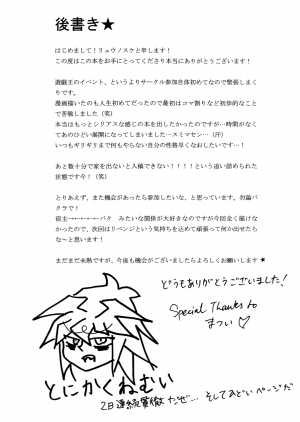 後書き★
はじめまして！リュウノスケと申します！
この度はこの本をお手にとってくださり本当にありがとうございます！
遊戯王のイベント、というよりサークル参加自体初めてなので緊張しまく
りです。
漫画描いたのも人生初めてだったので最初はコマ割りなど初歩的なこと
で苦戦しました（笑）
本当はもっとシリアスな感じの本を出したかったのですが…時間がなく
てあのひどい展開になってしまいました…スミマセン…（汗）
いつもギリギリまで何もやらない自分の性格早くなおしたいです…！
あと数十分で家を出ないと入稿できない！！！！という追い詰められた
状態です今！（笑）
とりあえず、また機会があったら参加したいな、と思っています。勿論バ
クラで！
宿主→←←←←バク　みたいな関係が大好きなのですが今回全く描けな
かったので、次回はリベンジという気持ちを込めて頑張って何か出せたら
な～と思います！
まだまだ未熟ですが、今後も機会がございましたらよろしくお願いします★
どうもありがとうございました！
Special Thanks to
まつい♡
とにかくねむい
2日連続貫徹だぜ… そしてあどいページだ